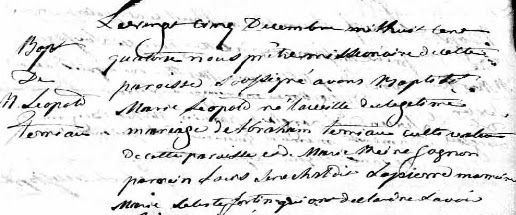 Le vingt cinq Decembre mil huit cent
quatorze nous prêtre missionaire de cette
paroisse soussigné avons Baptisé
Marie Leopold né la veille du legetime
mariage de Abraham cultivateur
de cette paroisse et de Marie Reine Gagnon
parrain Louis dit Lapierre marraine
Marie fortin qui ont declaré ne savoir
Bapt
De
M Leopold